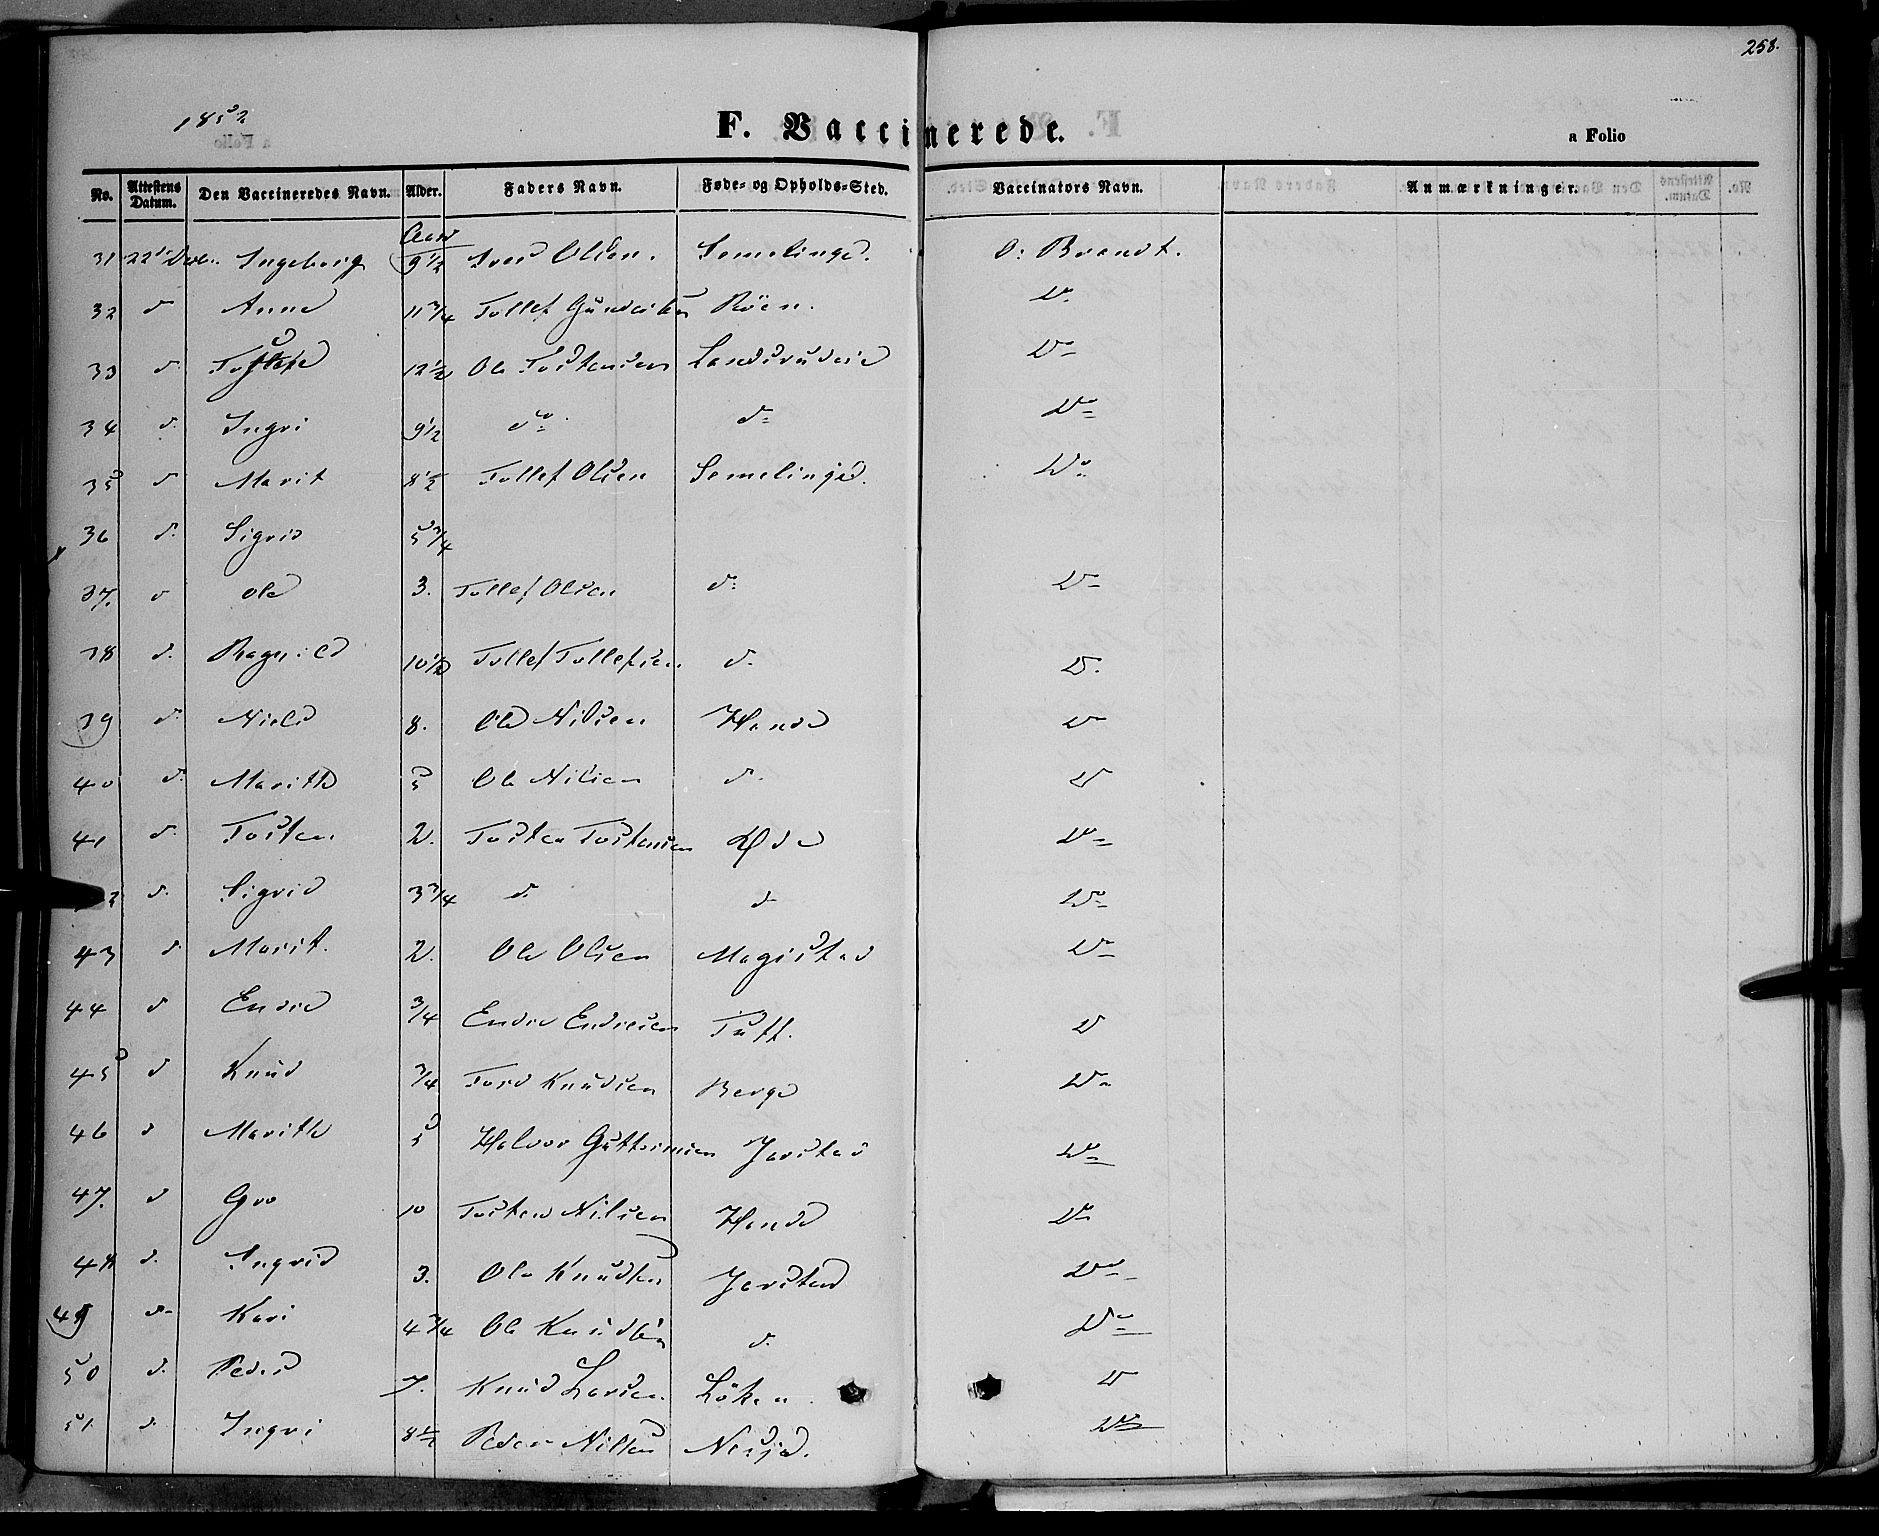 258.
1852
F. Vaccinerede.
a Folio
No. Attestens Datum. Den Vaccineredes Navn. Alder. Faders Navn. Føde- og Opholds-Sted. Vaccinators Navn. Anmærkninger.
Aar
31 22 Ingeborg 9 1/2 Iver Olsen. Semelinge. O: Brandt.
32 d Anne 11 3/4 Tollef Røen. Do
33 d. 12 1/2 Ole Tostensen Do
34 d. Ingri 9 1/2 do do Do
35 d Marit 8 1/2 Tollef Olsen Semelinge. Do
36 d. Sigrid 5 3/4
37. d Ole 3. Tollef Olsen d: Do
38 d. Ragnild 10 1/2 Tollef Tollefsen d. D.
39 d. Niels 8. Ole Nilsen Hande Do
40 d. Marithe 5 Ole Nilsen d. D
41 d. Tosten 2. Tosten Tostensen Øde Do
2 d. Sigrid 3 3/4 d. d Do
43 d Marit. 2. Ole Olsen Magistad Do
44 d Endre 3/4 Endre Endresen Tuff. D
45 d Knud 3/4 Tord Knudsen Berge Do
46 d Marithe 5 Halvor Guttormsen Jarstad Do
47. d Gro 10 Tosten Nilsen Hande Do
48 d. Ingrid 3. Ole Knudsen Jarstad Do
49 d. Kari 4 3/4 Ole Knudsen d. Do
50 d. Peder 7. Knud Larsen Løken. D
51 d. Ingri 8 1/2 Peder Nilsen Nesja. Do